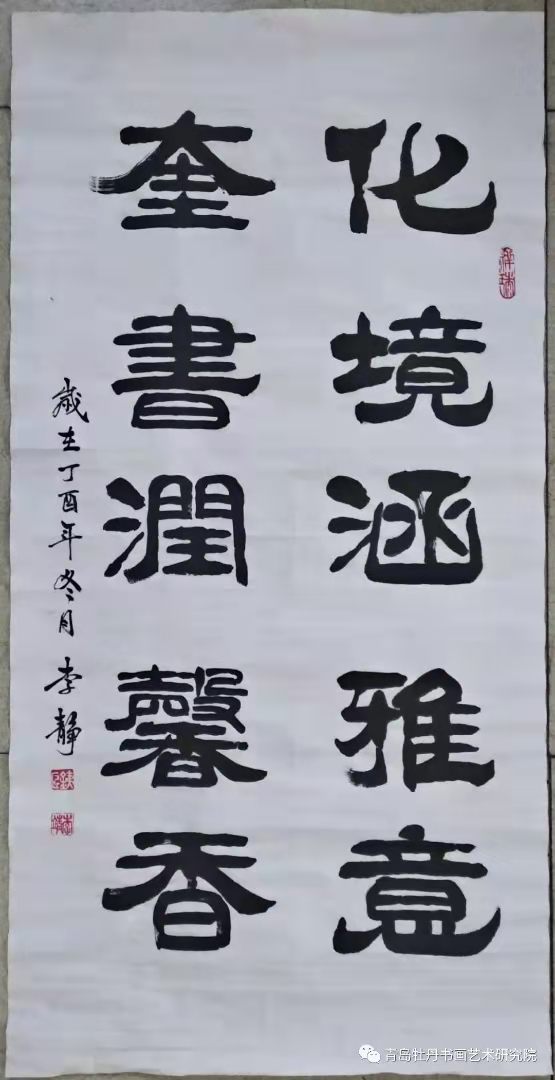 化境涵雅意
奎書潤馨香
歲在丁酉年冬月 李靜
青岛牡丹书画艺术研究院